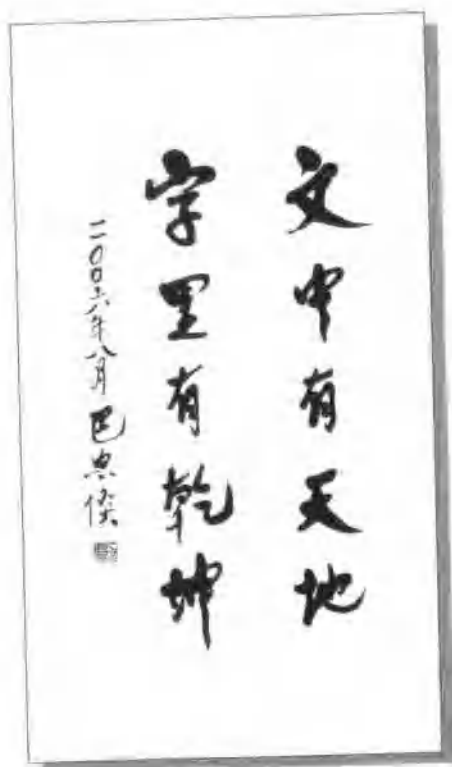 文中有天地
字里有乾坤
二〇〇六年八月 巴忠倓